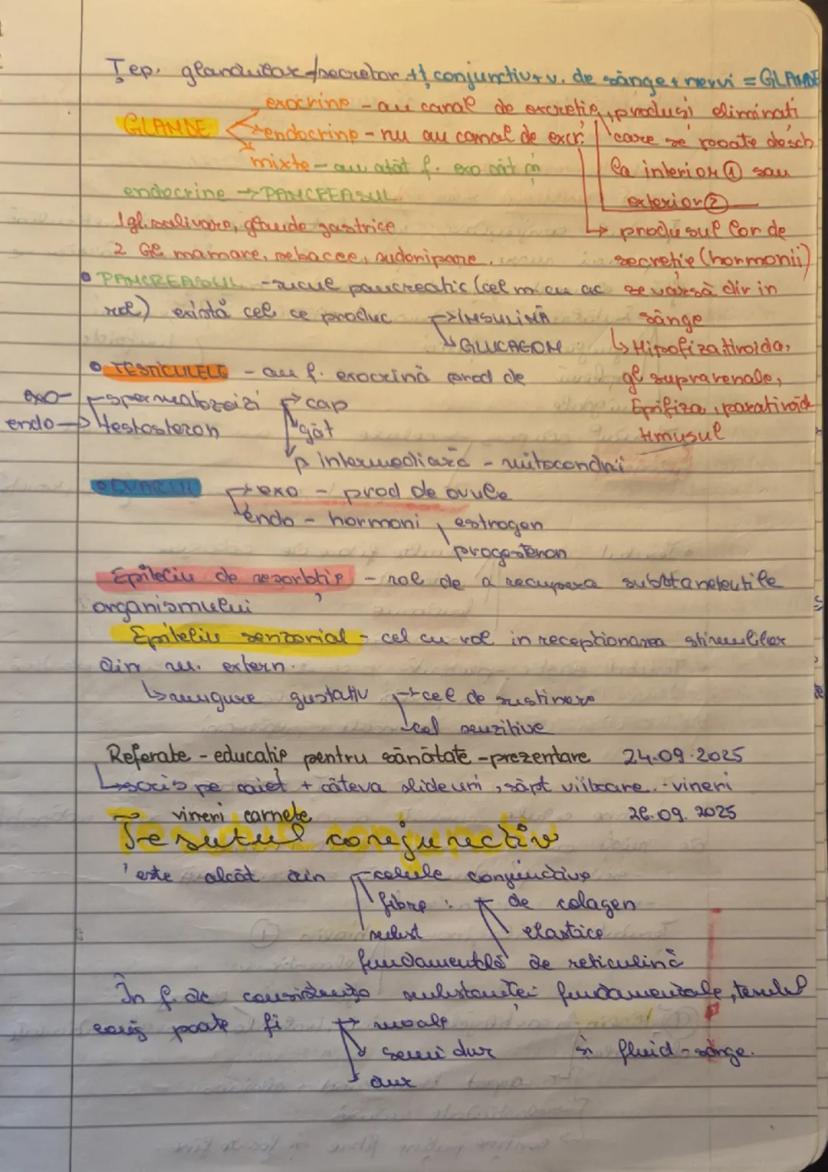 Țep. glandular/secretor + ț conjunctiv + v. de sânge + nervi = GLANDE
GLANDE
exocrine - au canal de excreție, produși eliminați
endocrine - nu au canal de excr.
care se poate desch
mixte - au atât f. exo cât și
la interior ① sau
endocrine → PANCREASUL
exterior ②
1 gl. salivare, glande gastrice
→ produsul lor de
2 Gl mamare, sebacee, sudoripare.
secreție (hormonii)
• PANCREASUL - sucul pancreatic (cel m cu ac
se varsă dir in
rol) există cel ce produc → INSULINĂ
sânge
→ GLUCAGON
↳ Hipofiza tiroida,
• TESTICULELE - au f. exocrină prod de
gl suprarenale,
exo- spermatozoizi → cap
Epifiza, paratiroide
endo → testosteron gât
timusul
p intermediară - mitocondrii
• OVARUL → exo - prod de ovule
endo - hormoni, estrogen
progesteron
Epiteliu de resorbție - rol de a recupera
organismului
Epiteliu senzorial - cel cu rol in receptionarea stimulilor
din m. extern.
↳ mugure gustativ → cel de sustinere
cel senzitive
Referate - educație pentru sănătate - prezentare 24.09.2025
↳ scris pe caiet + câteva slideuri, săpt viitoare - vineri
vineri carnete 26.09.2025
Țesutul conjunctiv
este alcăt din celule conjunctive
fibre: de colagen
subst elastice
fundamentală de reticulină
În f. de consistența substanței fundamentale, țesutul
conj poate fi → moale
semi dur și fluid - sânge.
dur